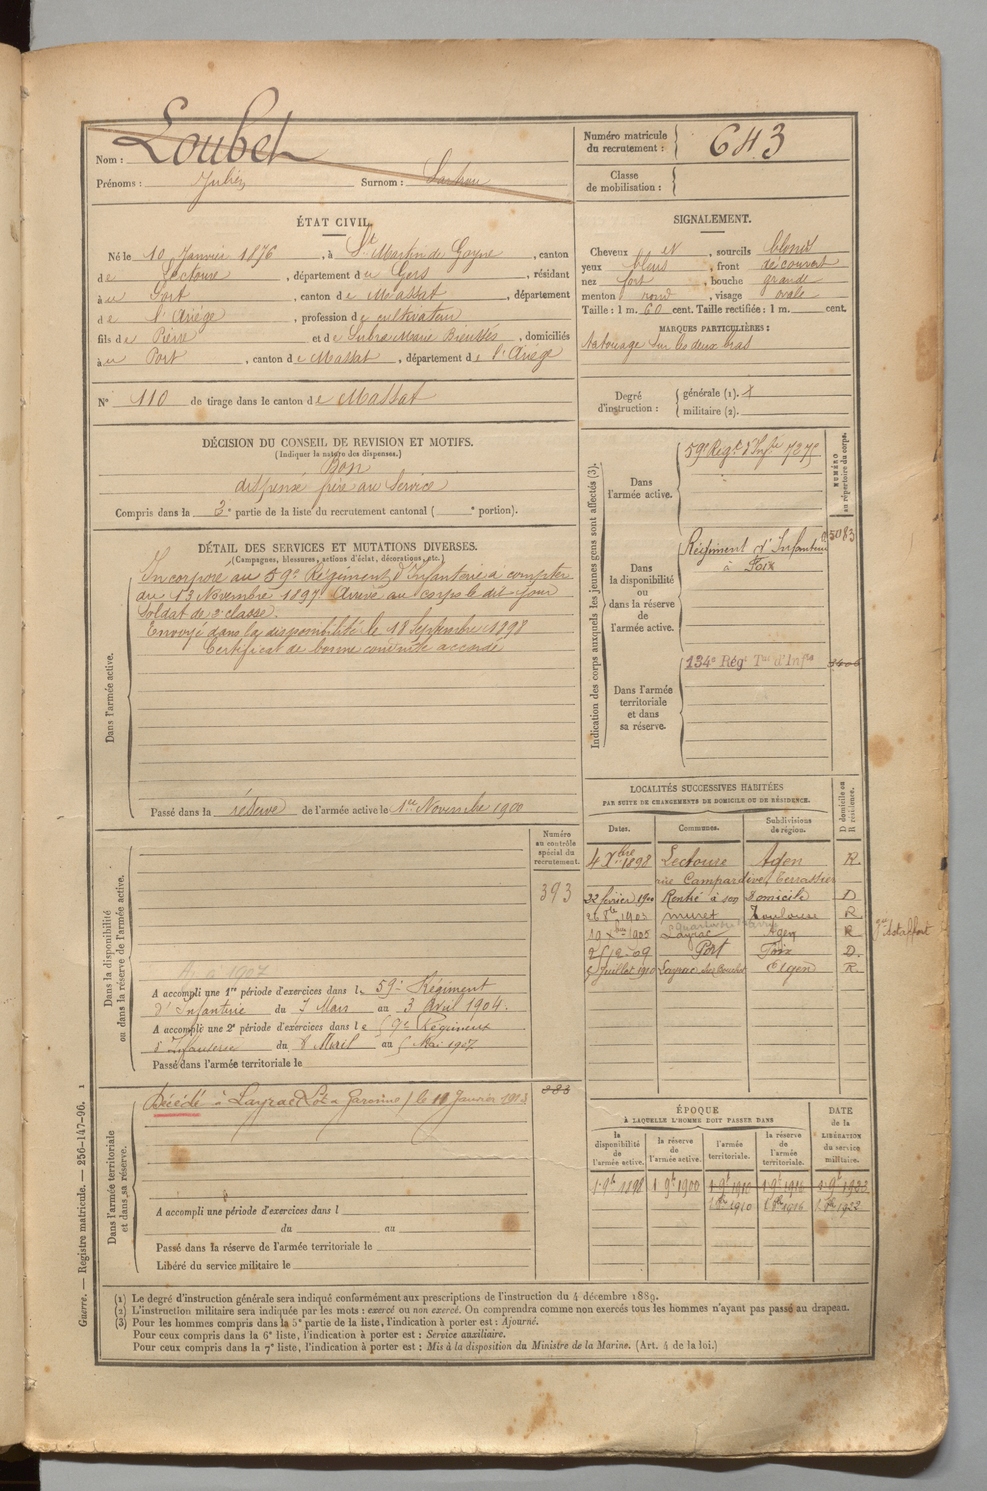 Nom : Loubet
Prénoms : Julien Surnom :
Numéro matricule du recrutement : 643
Classe de mobilisation :
ÉTAT CIVIL.
Né le 10 Janvier 1876, à St Martin de Goyne, canton
de Lectoure, département du Gers, résidant
à au Port, canton de Massat, département
de l'Ariège, profession de cultivateur
fils de Pierre et de, domiciliés
à au Port, canton de Massat, département de l'Ariège
N° 110 de tirage dans le canton de Massat
SIGNALEMENT.
Cheveux et, sourcils blonds
yeux bleus, front découvert
nez fort, bouche grande
menton rond, visage ovale
Taille : 1 m. 60 cent. Taille rectifiée : 1 m. cent.
MARQUES PARTICULIÈRES :
tatouage sur les deux bras
Degré d'instruction : générale (1).
militaire (2).
DÉCISION DU CONSEIL DE REVISION ET MOTIFS.
(Indiquer la nature des dispenses.)
Bon
dispensé frère au service
Compris dans la 3e partie de la liste du recrutement cantonal ( e portion).
DÉTAIL DES SERVICES ET MUTATIONS DIVERSES.
(Campagnes, blessures, actions d'éclat, décorations, etc.)
Dans l'armée active.
Incorporé au 59e Régiment d'Infanterie à compter
du 13 Novembre 1897 Arrivé au corps le dit jour
soldat de 2e classe.
Envoyé dans la disponibilité le 18 Septembre 1898
Certificat de bonne conduite accordé
Passé dans la réserve de l'armée active le 1er Novembre 1900
Indication des corps auxquels les jeunes gens sont affectés (3).
NUMÉRO au répertoire du corps.
Dans l'armée active.
59e Régt d'Infie
Dans la disponibilité ou dans la réserve de l'armée active.
Régiment d'Infanterie
à Foix
5083
Dans l'armée territoriale et dans sa réserve.
134e Régt Tal d'Infie
LOCALITÉS SUCCESSIVES HABITÉES
PAR SUITE DE CHANGEMENTS DE DOMICILE OU DE RÉSIDENCE.
Dates. Communes. Subdivisions de région. D domicile ou R résidence.
4 Xbre 1898 Lectoure Agen R.
22 février 1900 Rentré à son Domicile D
26 8bre 1903 Muret Toulouse R
10 Xbre 1905 Layrac Agen R
Port Foix D.
5 Juillet 1910 Layrac Agen R.
Dans la disponibilité ou dans la réserve de l'armée active.
Numéro au contrôle spécial du recrutement.
393
A accompli une 1re période d'exercices dans le 59e Régiment
d'Infanterie du 7 Mars au 3 Avril 1904.
A accompli une 2e période d'exercices dans le
d'Infanterie du 8 Avril au Mai 1907
Passé dans l'armée territoriale le
Dans l'armée territoriale et dans sa réserve.
Décédé à Layrac Lot et Garonne, le 19 Janvier 1913
A accompli une période d'exercices dans l
du au
Passé dans la réserve de l'armée territoriale le
Libéré du service militaire le
ÉPOQUE
À LAQUELLE L'HOMME DOIT PASSER DANS
DATE de la LIBÉRATION du service militaire.
la disponibilité de l'armée active. la réserve de l'armée active. l'armée territoriale. la réserve de l'armée territoriale.
1 9bre 1898 1 9bre 1900 1 9bre 1910 1 9bre 1916 1 9bre 1923
1 8bre 1910 1 8bre 1916 1 8bre 1922
(1) Le degré d'instruction générale sera indiqué conformément aux prescriptions de l'instruction du 4 décembre 1889.
(2) L'instruction militaire sera indiquée par les mots : exercé ou non exercé. On comprendra comme non exercés tous les hommes n'ayant pas passé au drapeau.
(3) Pour les hommes compris dans la 5e partie de la liste, l'indication à porter est : Ajourné.
Pour ceux compris dans la 6e liste, l'indication à porter est : Service auxiliaire.
Pour ceux compris dans la 7e liste, l'indication à porter est : Mis à la disposition du Ministre de la Marine. (Art. 4 de la loi.)
Guerre. — Registre matricule. — 256-147-96. 1